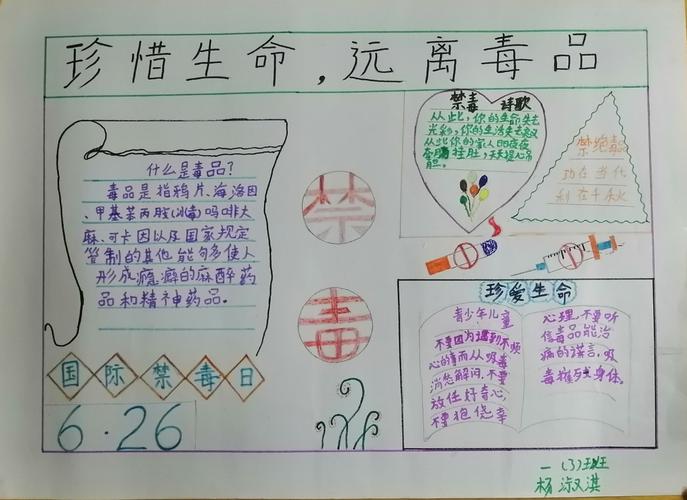 珍惜生命，远离毒品
什么是毒品？
毒品是指鸦片、海洛因
、甲基苯丙胺(冰毒)吗啡大
麻、可卡因以及国家规定
管制的其他能够多使人
形成瘾癖的麻醉药
品和精神药品。
国际禁毒日
6·26
禁
毒
禁毒 诗歌
从此，你的生命失去
光彩，你的生活失去意义
从此你的家人日日夜夜
牵肠挂肚，天天提心吊
胆。
禁绝毒
功在当代
利在千秋
珍爱生命
青少年儿童
不要因为遇到不顺
心的事而从吸毒
消愁解闷，不要
放任好奇心，
不要抱侥幸
心理，不要听
信毒品能治
病的谎言，吸
毒摧残身体。
一(3)班
杨淑淇